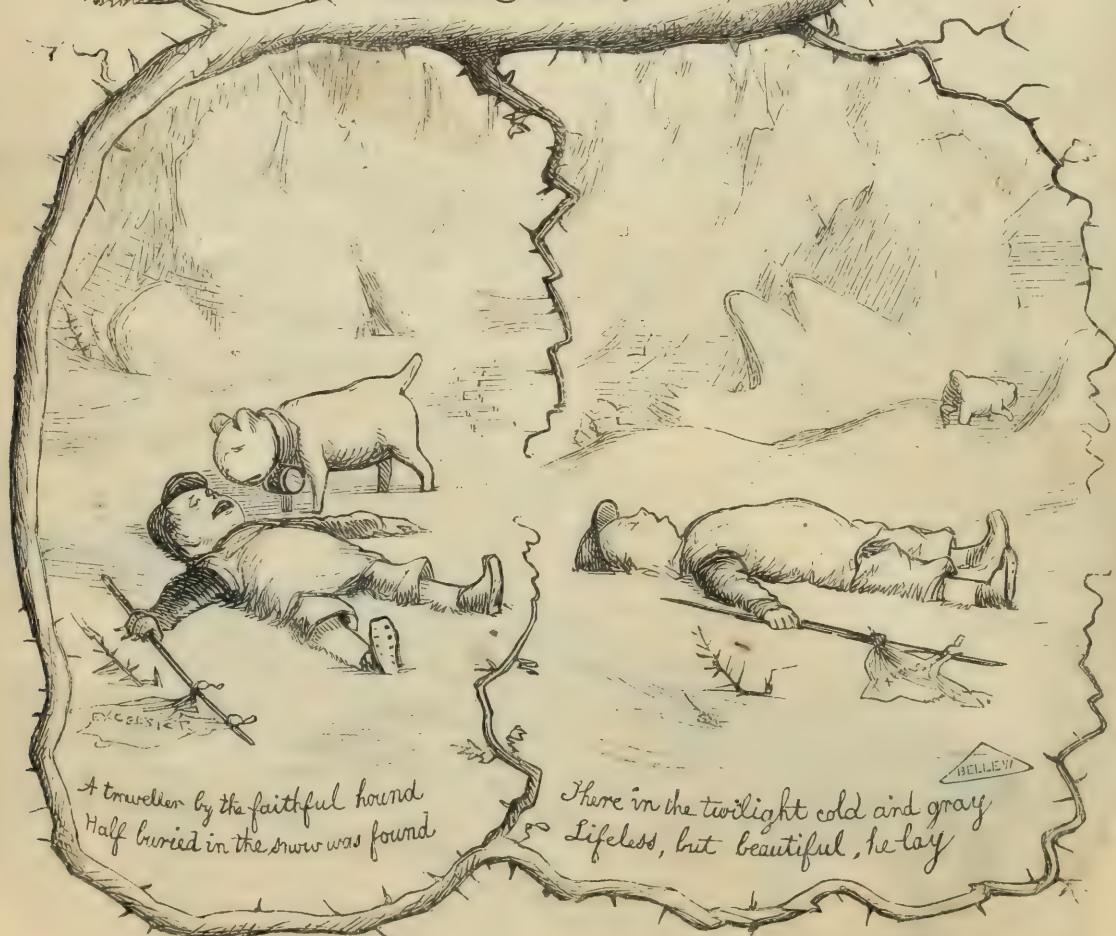 EXCELSIOR
A traveller by the faithful hound
Half buried in the snow was found
There in the twilight cold and gray
Lifeless, but beautiful, he lay
BELLEW